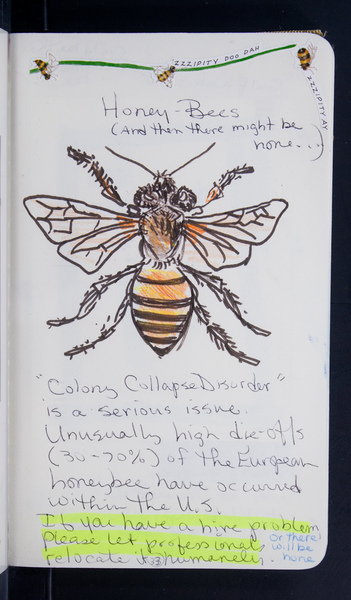 ZZZZIPITY DOO DAH
ZZZZIPITY AY
Honey-Bees
(And then there might be
none...)
"Colony Collapse Disorder"
is a serious issue.
Unusually high die-offs
(30-70%) of the European
honeybee have occurred
within the U.S.
If you have a hive problem
please let professionals
relocate it humanely.
or there
will be
none